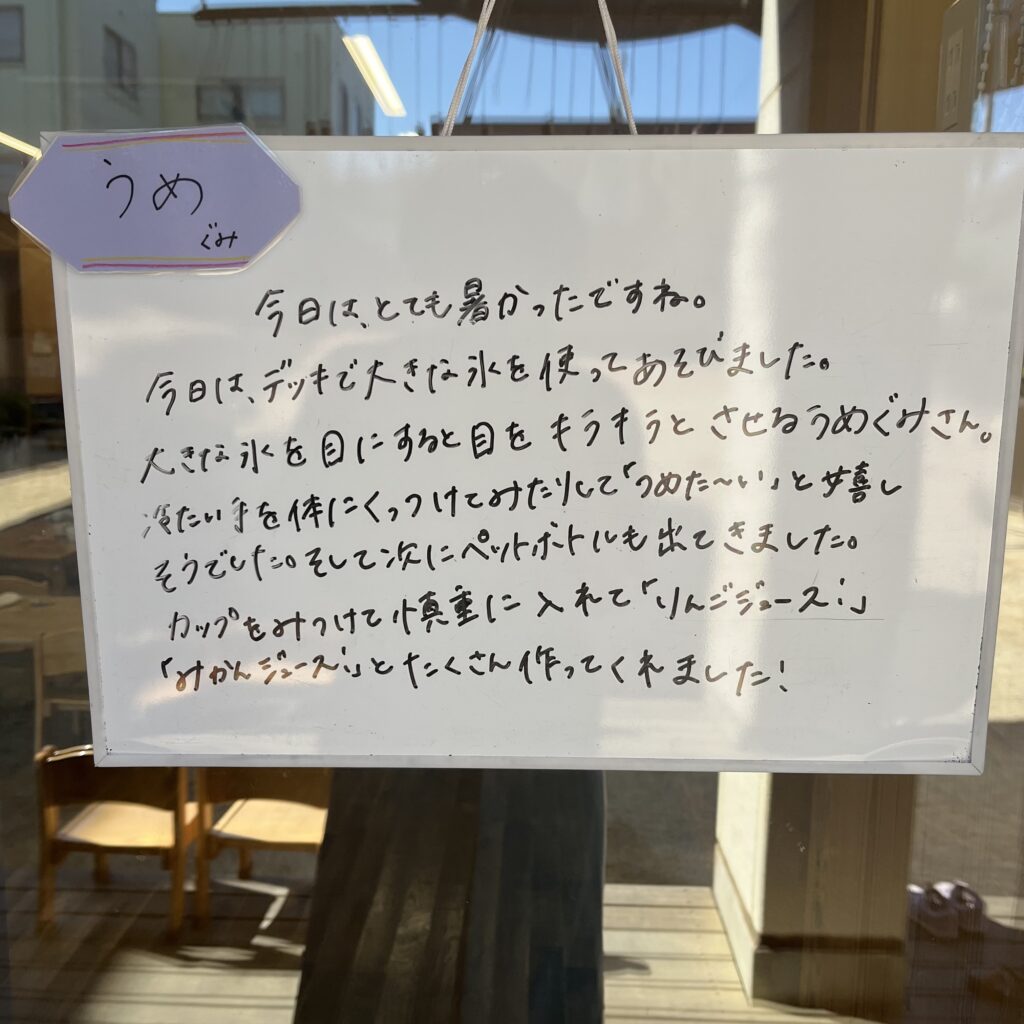 うめ
ぐみ
今日は、とても暑かったですね。
今日は、デッキで大きな氷を使ってあそびました。
大きな氷を目にすると目をキラキラとさせるうめぐみさん。
冷たい手を体にくっつけてみたりして「つめた〜い」と嬉し
そうでした。そして次にペットボトルも出てきました。
カップをみつけて慎重に入れて「りんごジュース!」
「みかんジュース!」とたくさん作ってくれました!